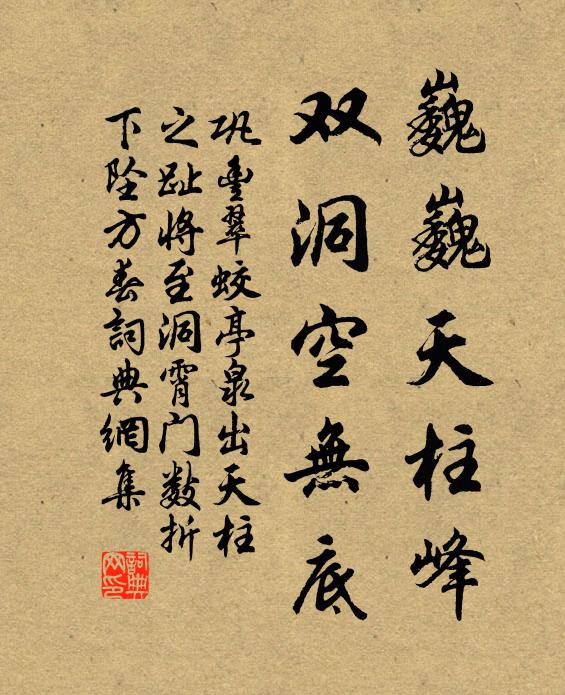 巍巍天柱峰
双洞空無底
巩豊翠蛟亭泉出天柱
之趾将至洞霄门数折
下坠方春詞典網集
詞典网印